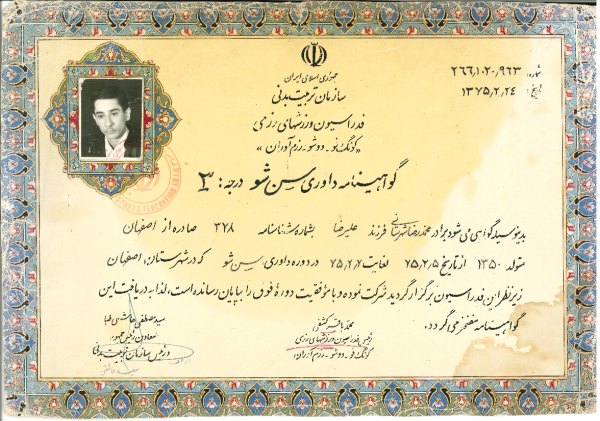 جمهوری اسلامی ایران
سازمان تربیت بدنی
فدراسیون ورزشهای رزمی
«کونگ فو - ووشو - رزم آوران»
شماره: ۲۶۶/۱۰۲۰۹۶۳
تاریخ: ۱۳۷۵,۲,۲۴
گواهینامه داوری سن شو درجه: ۳
بدینوسیله گواهی می شود برادر محمدرضا فرزند علیرضا بشماره شناسنامه ۳۷۸ صادره از اصفهان
متولد ۱۳۵۰ از تاریخ ۷۵,۲,۵ لغایت ۷۵,۲,۷ در دوره داوری سن شو که در شهرستان: اصفهان
زیر نظر این فدراسیون برگزار گردید شرکت نموده و با موفقیت دورهٔ فوق را بپایان رسانده است، لذا به دریافت این
گواهینامه مفتخر می گردد.
رئیس فدراسیون ورزشهای رزمی
کونگ فو - ووشو - رزم آوران
سید مصطفی هاشمی طبا
معاون رئیس جمهور
و رئیس سازمان تربیت بدنی